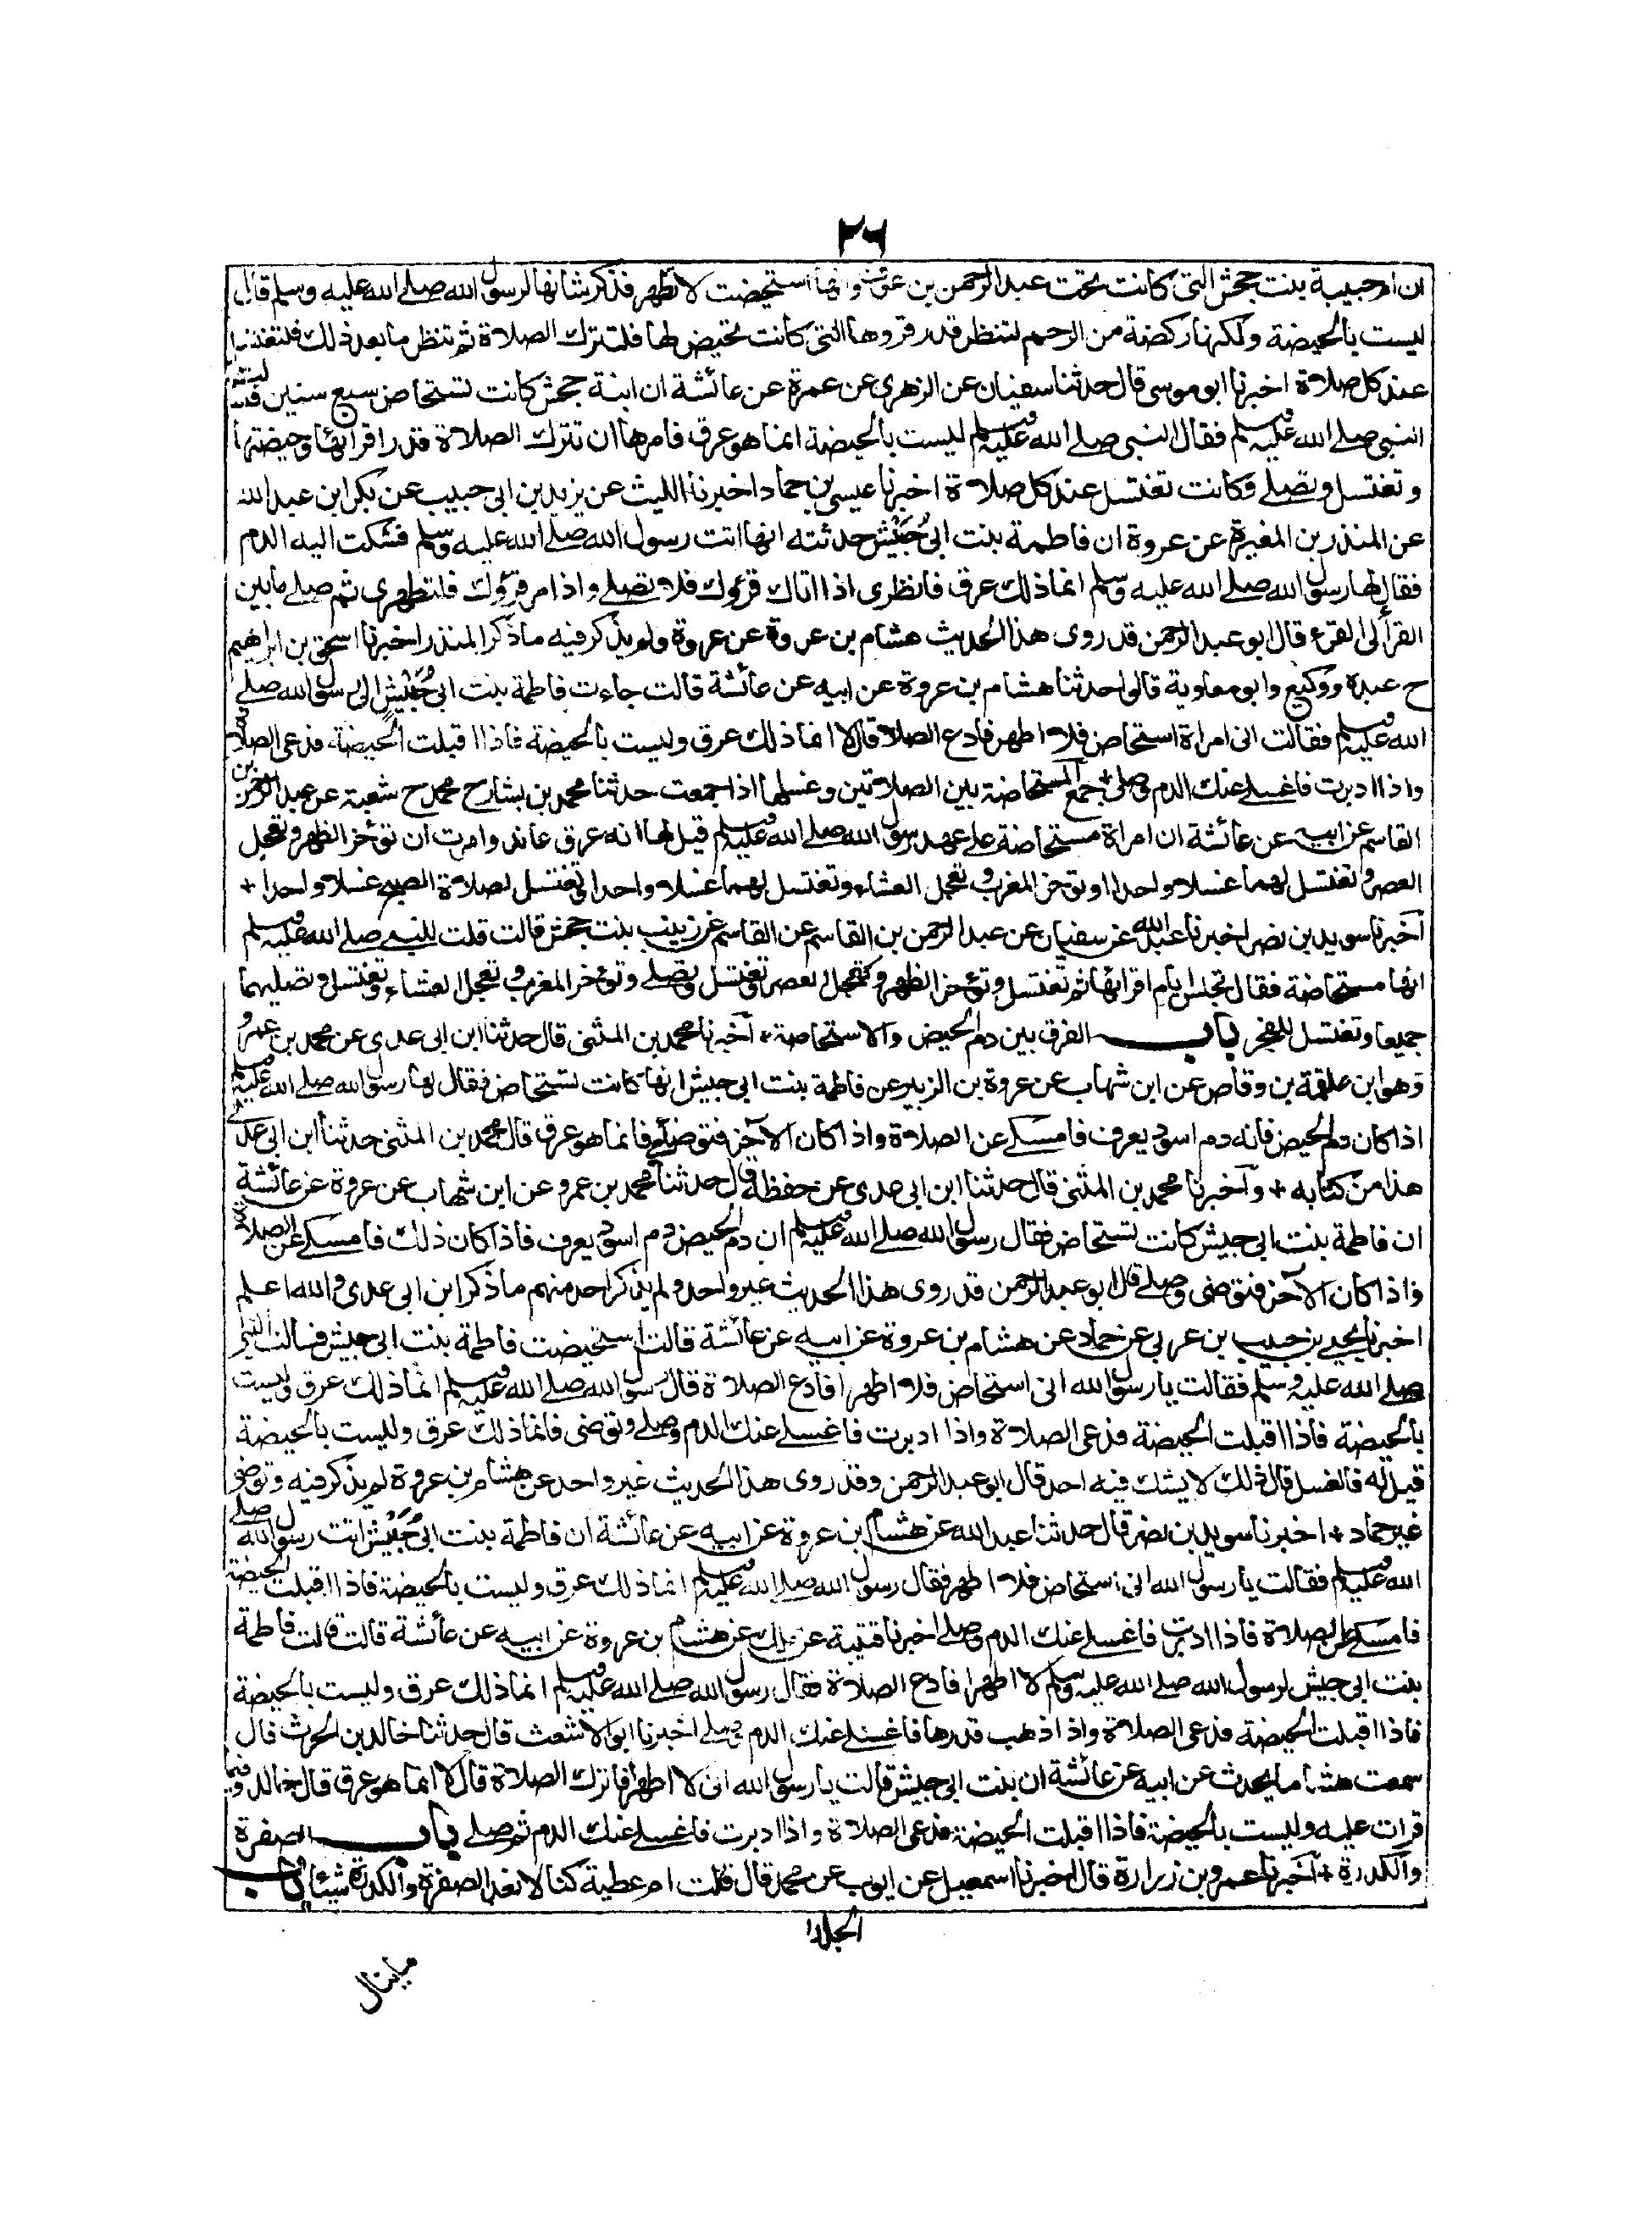 ٢٦
ان ام حبيبة بنت جحش التى كانت تحت عبد الرحمن بن عوف وانها استحيضت لا تطهر فذكر شانها لرسول الله صلے الله عليه وسلم قال
ليست بالحيضة ولكنها ركضة من الرحم لتنظر قدر قروها التى كانت تحيض لها فلتترك الصلاة ثم تنظر ما بعد ذلك فلتغتسل
عند كل صلاة اخبرنا ابو موسى قال حدثنا سفيان عن الزهرى عن عمرة عن عائشة ان ابنة جحش كانت تستحاض سبع سنين فسألت
النبى صلے الله عليه وسلم فقال النبى صلے الله عليه وسلم ليست بالحيضة انما هو عرق فامرها ان تترك الصلاة قدر اقرائها وحيضتها
وتغتسل وتصلے فكانت تغتسل عند كل صلاة اخبرنا عيسى بن حماد اخبرنا الليث عن يزيد بن ابى حبيب عن بكر ابن عبد الله
عن المنذر بن المغيرة عن عروة ان فاطمة بنت ابى حُبَيْش حدثته انها اتت رسول الله صلے الله عليه وسلم فشكت اليه الدم
فقال لها رسول الله صلے الله عليه وسلم انما ذلك عرق فانظرى اذا اتاك قرؤك فلا تصلے واذا مر قرؤك فلتطهرى ثم صلے ما بين
القرأ الى القرء قال ابو عبد الرحمن قد روى هذا الحديث هشام بن عروة عن عروة ولم يذكر فيه ما ذكر المنذر اخبرنا اسحق بن ابراهيم
ح عبدة ووكيع وابو معاوية قالوا حدثنا هشام بن عروة عن ابيه عن عائشة قالت جاءت فاطمة بنت ابى حُبَيْش الى رسول الله صلے
الله عليه وسلم فقالت انى امراة استحاض فلا اطهر فادع الصلاة قال لا انما ذلك عرق وليست بالحيضة فاذا اقبلت الحيضة فدعى الصلاة
واذا ادبرت فاغسلے عنك الدم وصلے + جمع المستحاضة بين الصلاتين وغسلها اذا جمعت حدثنا محمد بن بشار ح محمد ح شعبة عن عبد الرحمن بن
القاسم عن ابيه عن عائشة ان امراة مستحاضة علے عهد رسول الله صلے الله عليه وسلم قيل لها انه عرق عاند وامرت ان تؤخر الظهر وتعجل
العصر وتغتسل لهما غسلا واحدا او تؤخر المغرب وتعجل العشاء وتغتسل لهما غسلا واحدا وتغتسل لصلاة الصبح غسلا واحدا +
اخبرنا سويد بن نصر اخبرنا عبد الله عن سفيان عن عبد الرحمن بن القاسم عن القاسم عن زينب بنت جحش قالت قلت للنبے صلے الله عليه وسلم
انها مستحاضة فقال تجلس ايام اقرائها ثم تغتسل وتؤخر الظهر وتعجل العصر وتغتسل وتصلے وتؤخر المغرب وتعجل العشاء وتغتسل وتصليهما
جميعا وتغتسل للفجر باب الفرق بين دم الحيض والاستحاضة + اخبرنا محمد بن المثنى قال حدثنا ابن ابى عدى عن محمد بن عمرو
وهو ابن علقمة بن وقاص عن ابن شهاب عن عروة بن الزبير عن فاطمة بنت ابى حبيش انها كانت تستحاض فقال لها رسول الله صلے الله عليه وسلم
اذا كان دم الحيض فانه دم اسود يعرف فامسكے عن الصلاة واذا كان الآخر فتوضئے فانما هو عرق قال محمد بن المثنى حدثنا ابن ابى عدى
هذا من كتابه + واخبرنا محمد بن المثنى قال حدثنا ابن ابى عدى عن حفظه قال حدثنا محمد بن عمرو عن ابن شهاب عن عروة عن عائشة
ان فاطمة بنت ابى حبيش كانت تستحاض فقال رسول الله صلے الله عليه وسلم ان دم الحيض دم اسود يعرف فاذا كان ذلك فامسكے عن الصلاة
واذا كان الآخر فتوضى وصلے قال ابو عبد الرحمن قد روى هذا الحديث غير واحد ولم يذكر احد منهم ما ذكر ابن ابى عدى والله اعلم
اخبرنا يحيے بن حبيب بن عربى عن حماد عن هشام بن عروة عن ابيه عن عائشة قالت استحيضت فاطمة بنت ابى حبيش فسالت النبى
صلے الله عليه وسلم فقالت يا رسول الله انى استحاض فلا اطهر افادع الصلاة قال رسول الله صلے الله عليه وسلم انما ذلك عرق وليست
بالحيضة فاذا اقبلت الحيضة فدعى الصلاة واذا ادبرت فاغسلے عنك الدم وصلے وتوضى فانما ذلك عرق وليست بالحيضة
قيل له فالغسل قال ذلك لا يشك فيه احد قال ابو عبد الرحمن وقد روى هذا الحديث غير واحد عن هشام بن عروة لم يذكر فيه وتوضى
غير حماد + اخبرنا سويد بن نصر قال حدثنا عبد الله عن هشام بن عروة عن ابيه عن عائشة ان فاطمة بنت ابى حُبَيْش اتت رسول الله صلے
الله عليه وسلم فقالت يا رسول الله انى استحاض فلا اطهر فقال رسول الله صلے الله عليه وسلم انما ذلك عرق وليست بالحيضة فاذا اقبلت الحيضة
فامسكے عن الصلاة فاذا ادبرت فاغسلے عنك الدم وصلے اخبرنا قتيبة عن ملك عن هشام بن عروة عن ابيه عن عائشة قالت قالت فاطمة
بنت ابى حبيش لرسول الله صلے الله عليه وسلم لا اطهر افادع الصلاة فقال رسول الله صلے الله عليه وسلم انما ذلك عرق وليست بالحيضة
فاذا اقبلت الحيضة فدعى الصلاة واذا ذهب قدرها فاغسلے عنك الدم وصلے اخبرنا ابو الاشعث قال حدثنا خالد بن الحرث قال
سمعت هشاما يحدث عن ابيه عن عائشة ان بنت ابى حبيش قالت يا رسول الله انى لا اطهر افاترك الصلاة قال لا انما هو عرق قال خالد وفيما
قرات عليه وليست بالحيضة فاذا اقبلت الحيضة فدعى الصلاة واذا ادبرت فاغسلے عنك الدم ثم صلے باب الصفرة
والكدرة + اخبرنا عمرو بن زرارة قال اخبرنا اسمعيل عن ايوب عن محمد قال قالت ام عطية كنا لا نعد الصفرة والكدرة شيئا باب
الجلد ١